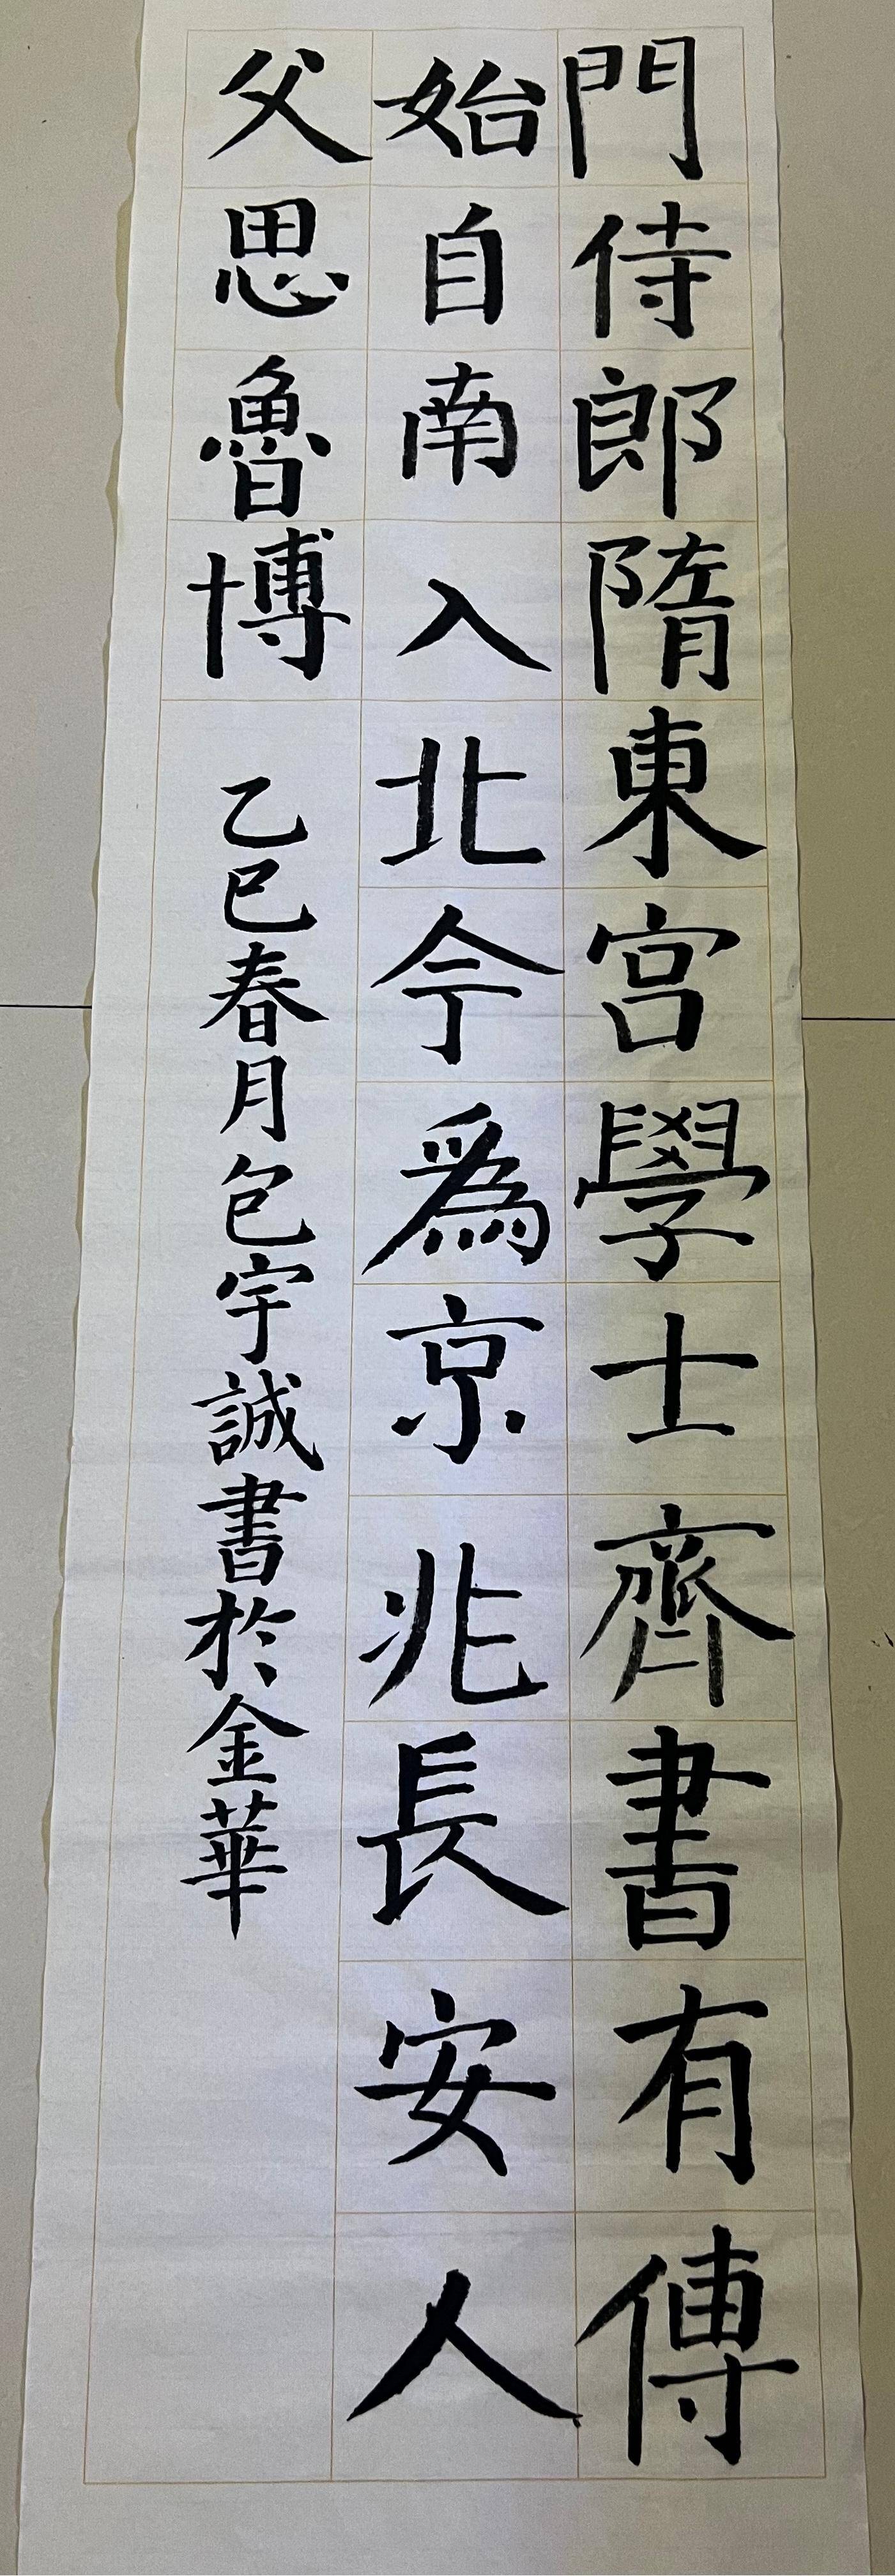 門侍郎隋東宮學士齊書有傳
始自南入北今爲京兆長安人
父思魯博
乙巳春月包宇誠書於金華